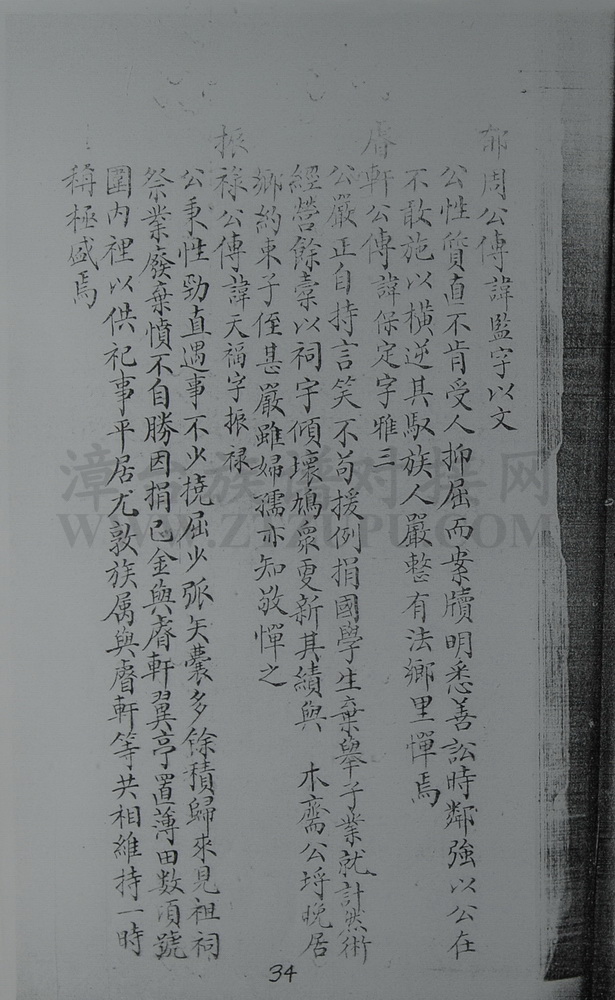 郁周公傳諱監字以文
公性質直不肯受人抑屈而案牘明悉善訟時鄰強以公在
不敢施以橫逆其馭族人嚴整有法鄉里憚焉
睿軒公傳諱保定字雅三
公嚴正自持言笑不苟援例捐國學生棄舉子業就計然術
經營餘橐以祠宇傾壞鳩眾更新其績與 木齋公埒晚居
鄉約束子侄甚嚴雖婦孺亦知敬憚之
振祿公傳諱天福字振祿
公秉性勁直遇事不少撓屈少弧矢囊多餘積歸來見祖祠
祭業廢棄憤不自勝因捐己金與睿軒翼亭置薄田數項號
圍內裡以供祀事平居尤敦族属與睿軒等共相維持一時
稱極盛焉
34
WWW.ZZZUPU.COM